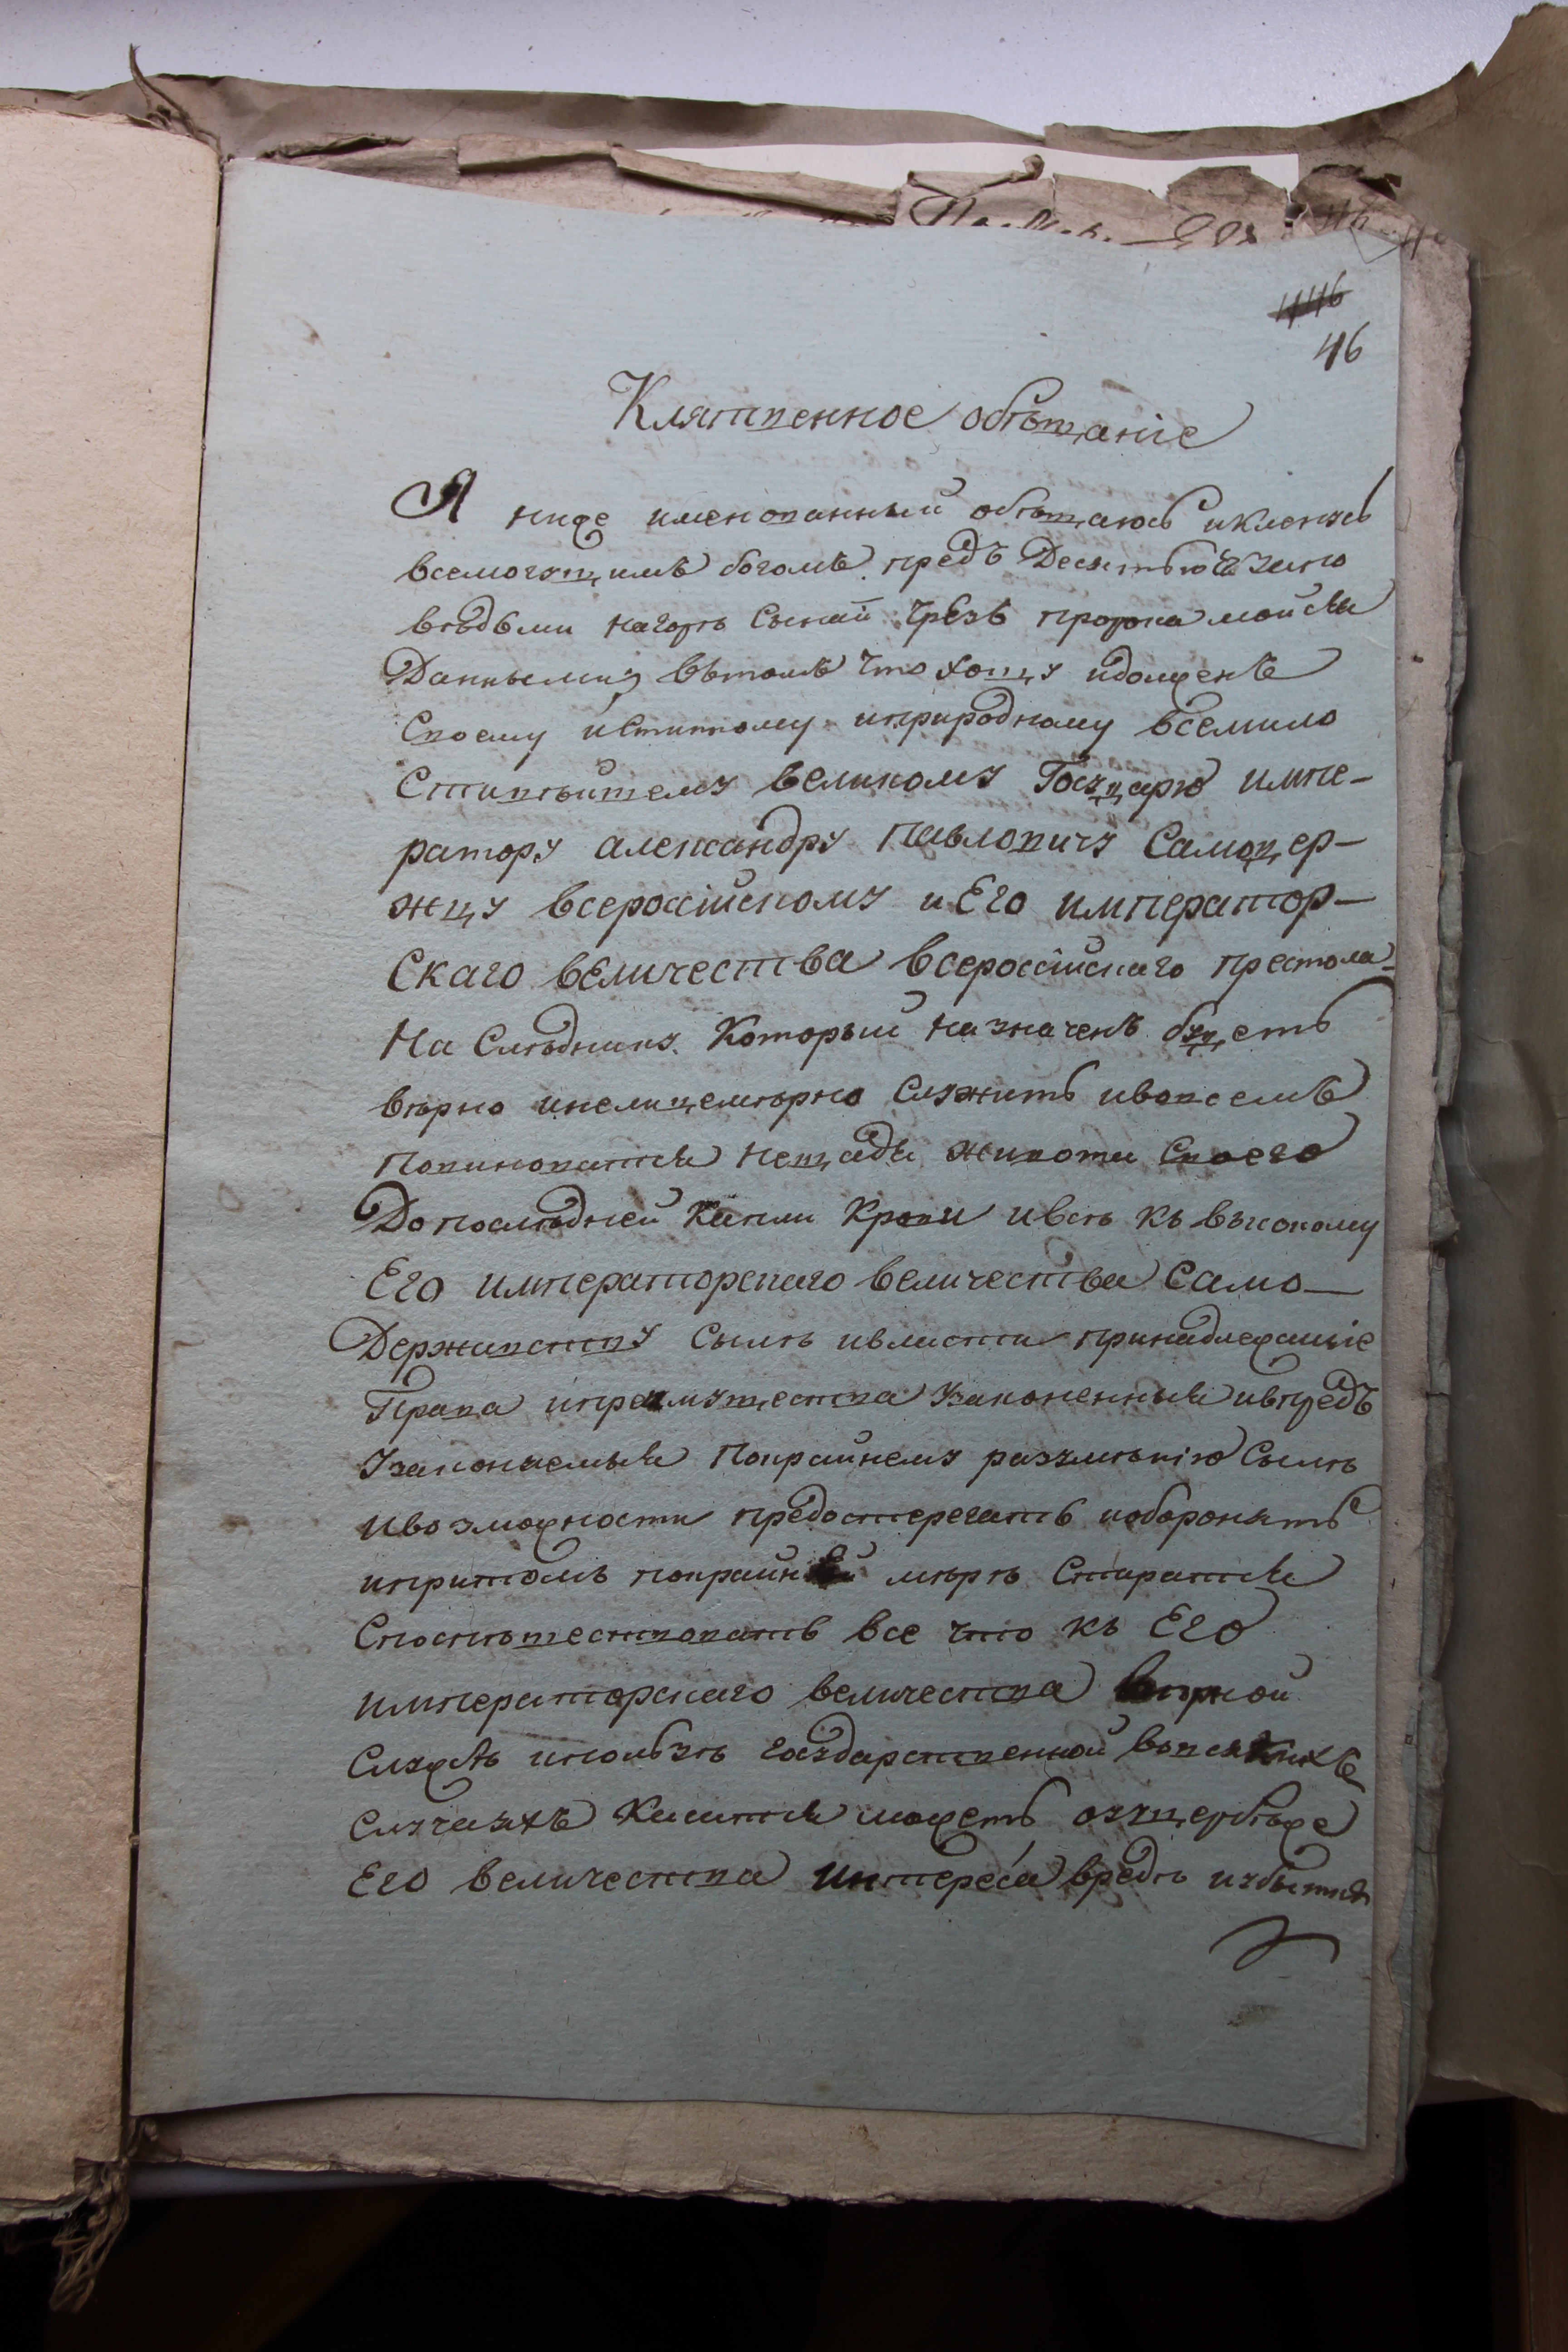 46
Клятвенное обѣщаніе
Я ниже именованный обѣщаюсь иклянусь
всемогущимъ богомъ предъ Десятью Его
вѣдьми нагорѣ Сынай чрезъ пророка мойсея
Данными вътомъ что хощу идолженъ
Своему истинному иприродному всемило
Стивѣйшему великому Государю импе-
ратору александру павловичу Самодер-
жцу всероссійскому и Его император-
Скаго величества всероссійскаго престола
На Слѣднику Который назначенъ будетъ
вѣрно инелицемѣрно Служить ивовсемъ
повиноватся нещадя живота Своего
До послѣдней Капли Крови ивсѣ къ высокому
Его императорскаго величества Само-
Державству Сылѣ ивласти принадлежашіе
Права ипреимущества Узаконенныя ивпредъ
Узаконяемыя Покрайнему разумѣнію Сылѣ
ивозможности предостерегать иоборонять
ипритомъ покрайней мѣрѣ Старатся
Споспѣшествовать все что къ Его
императорскаго величества вѣрной
Службѣ ипользѣ государственной вовсякихъ
Случаяхъ Касатся можетъ оущербѣже
Его величества интереса вредѣ иубыткѣ